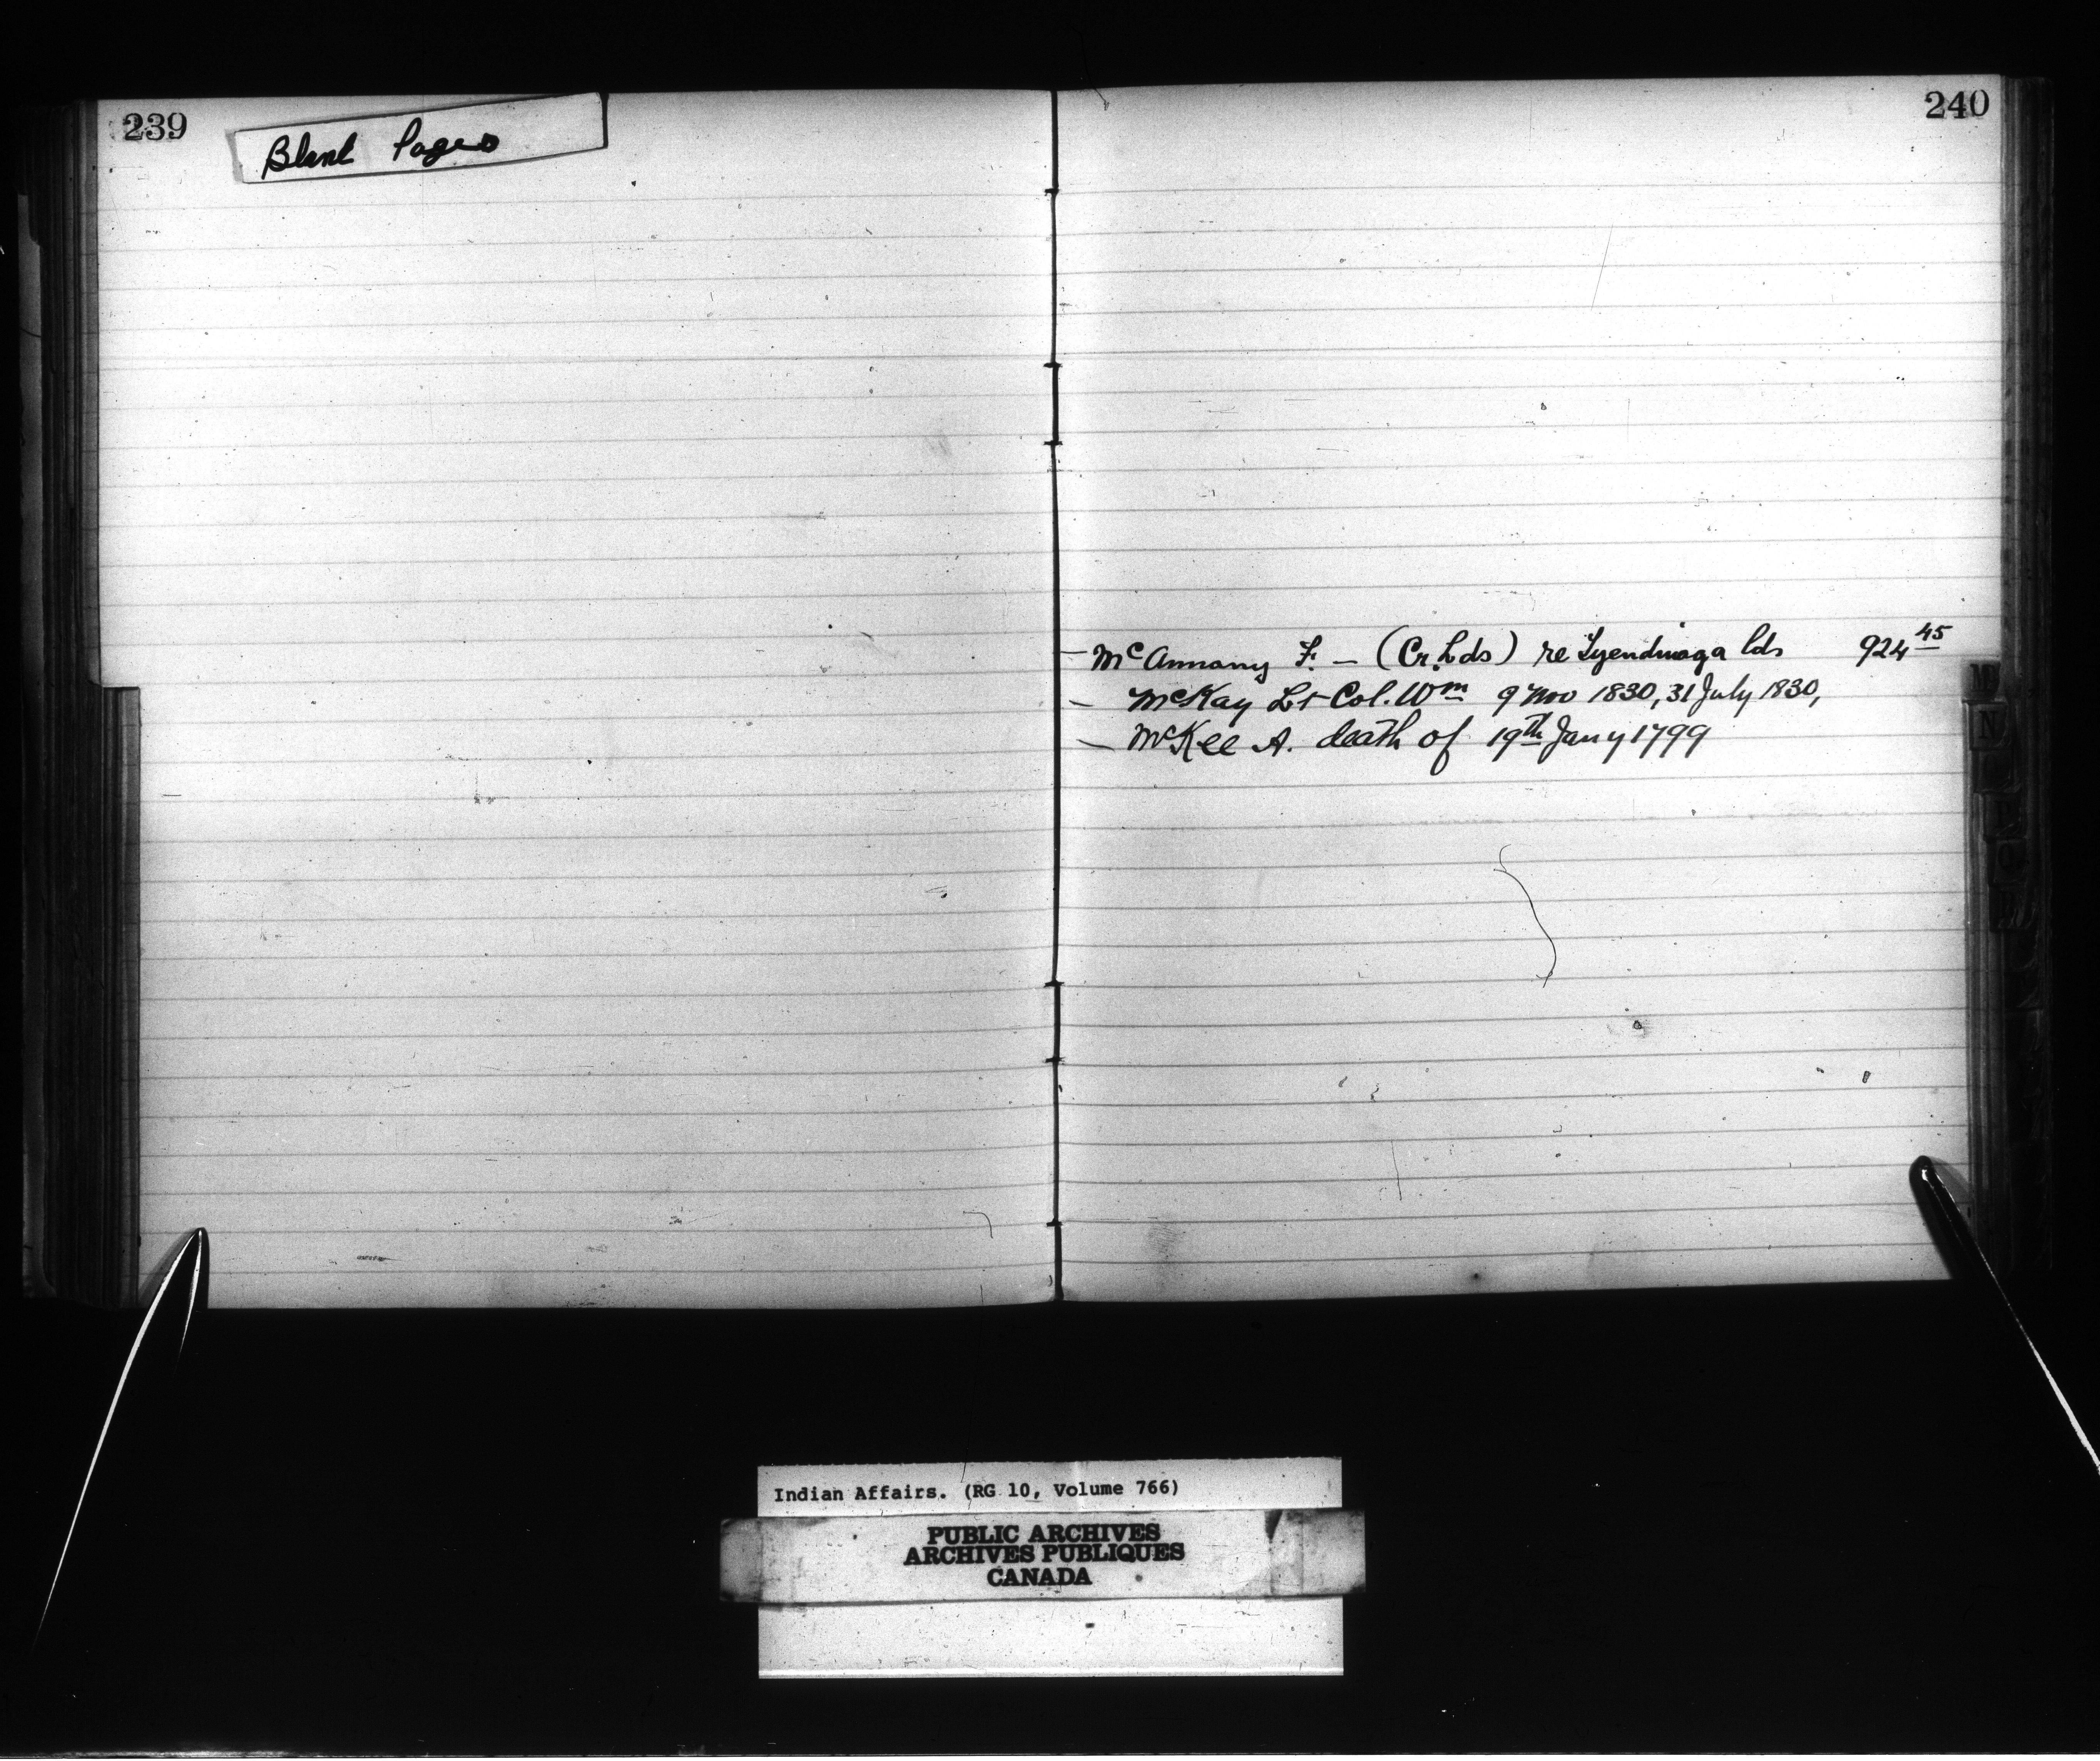 239
Blank Pages
240
— McAnnany F. — (Cr. Lds) re Tyendinaga lds 924 45
— McKay Lt Col. Wm 9 Nov 1830, 31 July 1830,
— McKee A. death of 19th Jany 1799
M
N
P
Q
Indian Affairs. (RG 10, Volume 766)
PUBLIC ARCHIVES
ARCHIVES PUBLIQUES
CANADA